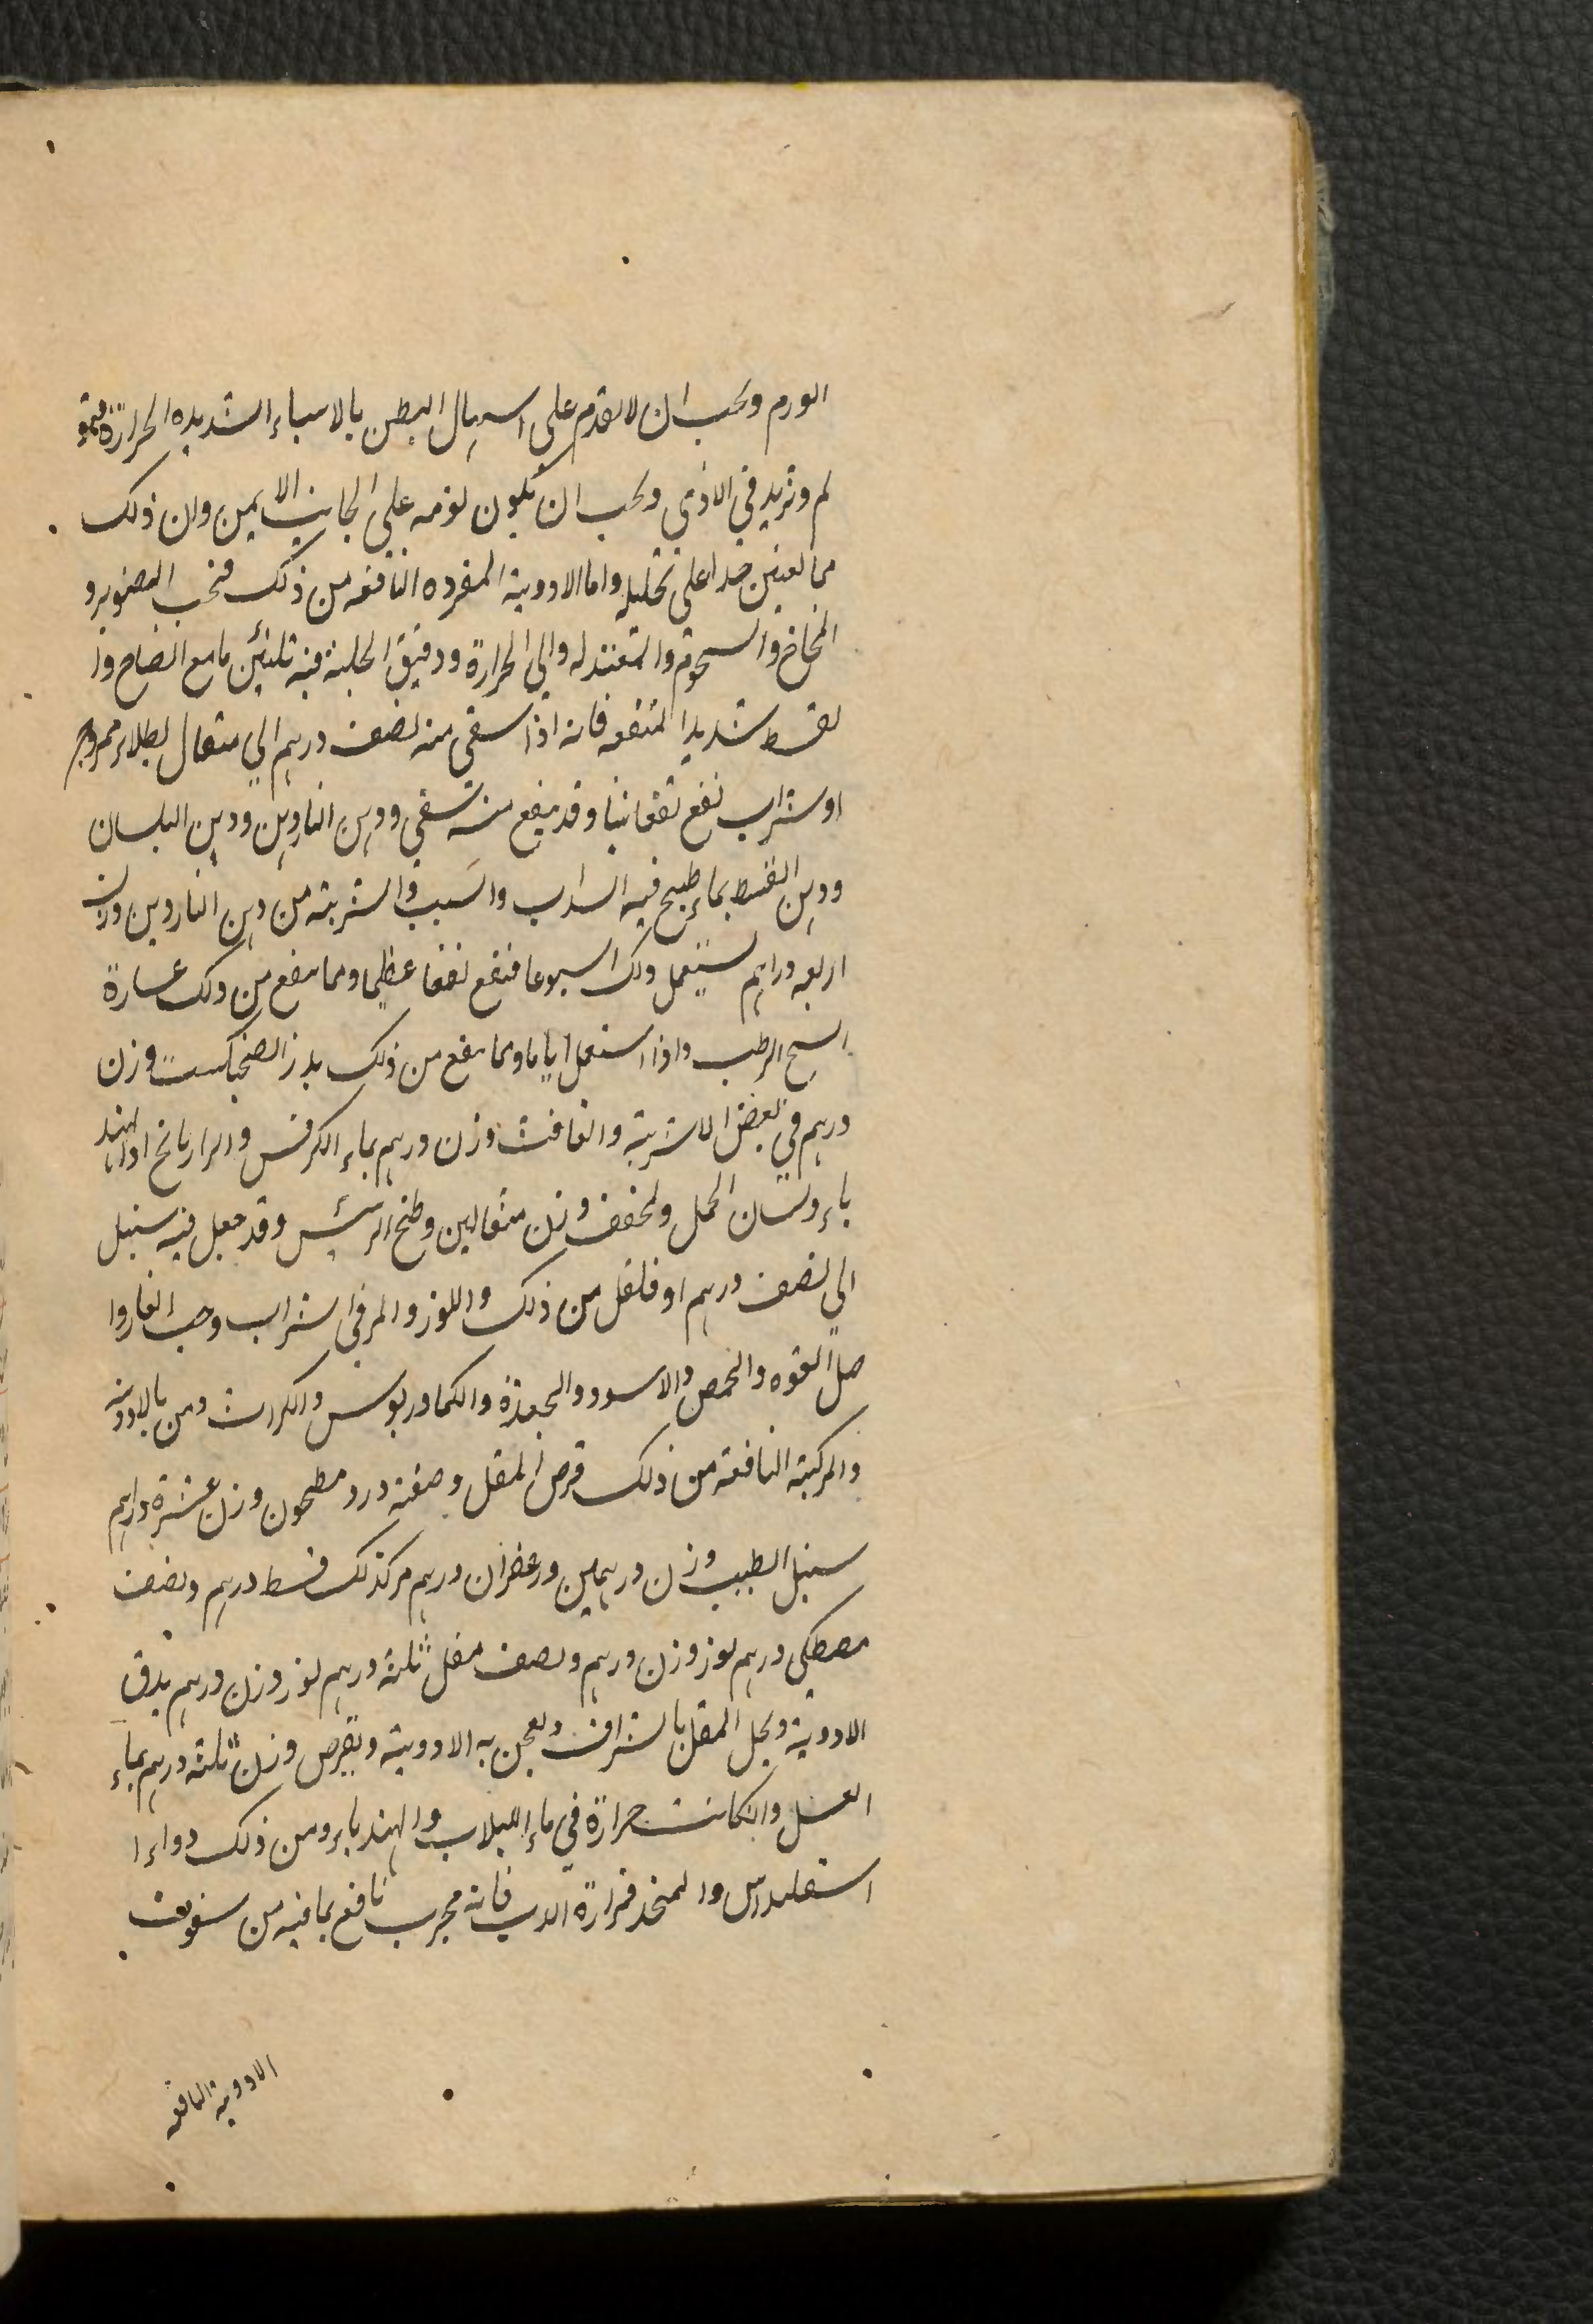 الورم ويجب ان لا يقدم على اسهال البطن بالاشياء الشديده الحرارة
لم وتزيد في الاذى ويجب ان يكون نومه على الجانب الايمن وان ذلك
مما يعين جدا على تحليله واما الادوية المفرده النافعه من ذلك فحب الصنوبر و
والمعتدله والى الحرارة ودقيق الحلبة فيه تليين ما مع انضاج وا
لقسط شديدا المنفعه فانه اذا سقى منه نصف درهم الي مثقال بطلاء ممزوج
او شراب نفع نفعا بينا وقد ينفع منه سقى ودهن الناردين ودهن البلسان
ودهن القسط بماء طبيخ فيه السداب والشبت والشربة من دهن الناردين وزن
اربعه دراهم يستعمل ذلك اسبوعا فنفع نفعا عظيما ومما ينفع من ذلك عصارة
الشيح الرطب واذا استعمل اياما ومما ينفع من ذلك بذر الفنجنكست وزن
درهم في بعض الاشربة والغافت وزن درهم بماء الكرفس والرازيانج او الهند
باء ولسان الحمل ويجفف وزن مثقالين وطبخ الترمس وقد جعل فيه سنبل
الي نصف درهم او فلفل من ذلك واللوز والمر في شراب وحب الغار وا
صل الفوه والحمص والاسود والجعدة والكمادريوس والكراث ومن بالادوية
والمركبة النافعة من ذلك قرص المقل وصفته ورد مطحون وزن عشرة دراهم
سنبل الطيب وزن درهمين وزعفران درهم مر كذلك قسط درهم ونصف
مصطكي درهم لوز وزن درهم ونصف مقل ثلثة درهم لوز وزن درهم يدق
الادوية ويحل المقل بالشراب ويعجن به الادوية ويقرص وزن ثلثة درهم بماء
العسل وان كانت حرارة في ماء اللبلاب والهندباء ومن ذلك دواء ا
فانه مجرب نافع بما فيه من سفوف
الادوية النافعه